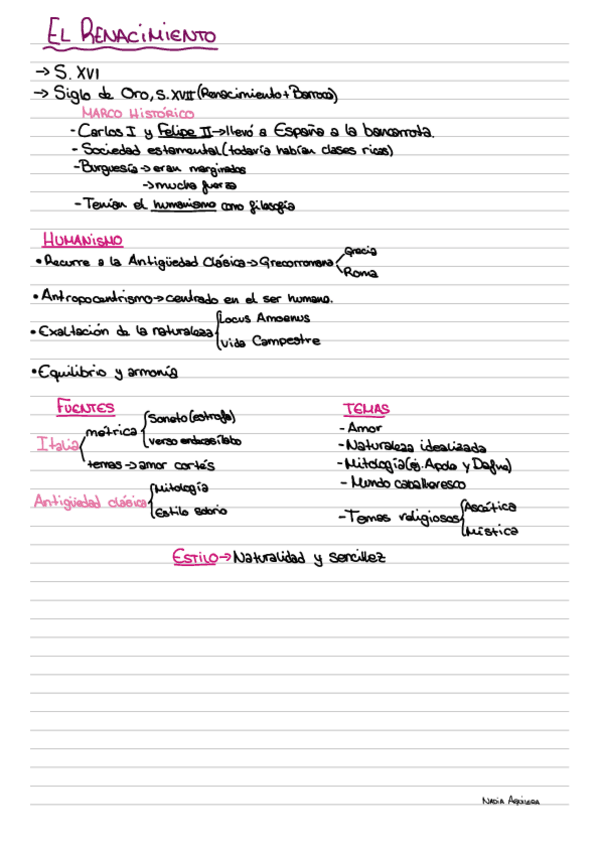 EL RENACIMIENTO
→ S. XVI
→ Siglo de Oro, S. XVII (Renacimiento + Barroco)
MARCO HISTÓRICO
- Carlos I y Felipe II → llevó a España a la bancarrota.
- Sociedad estamental (todavía habían clases ricas)
- Burguesía → eran marginados
→ mucha fuerza
- Tenían el humanismo como filosofía
HUMANISMO
• Recurre a la Antigüedad Clásica → Grecorromana
Grecia
Roma
• Antropocentrismo → centrado en el ser humano.
• Exaltación de la naturaleza
Locus Amoenus
Vida Campestre
• Equilibrio y armonía
FUENTES
Italia
métrica
Soneto (estrofa)
verso endecasílabo
temas → amor cortés
Antigüedad clásica
Mitología
Estilo sobrio
TEMAS
- Amor
- Naturaleza idealizada
- Mitología (ej. Apolo y Dafne)
- Mundo caballeresco
- Temas religiosos
Ascética
Mística
ESTILO → Naturalidad y sencillez
NADIA AGUILERA